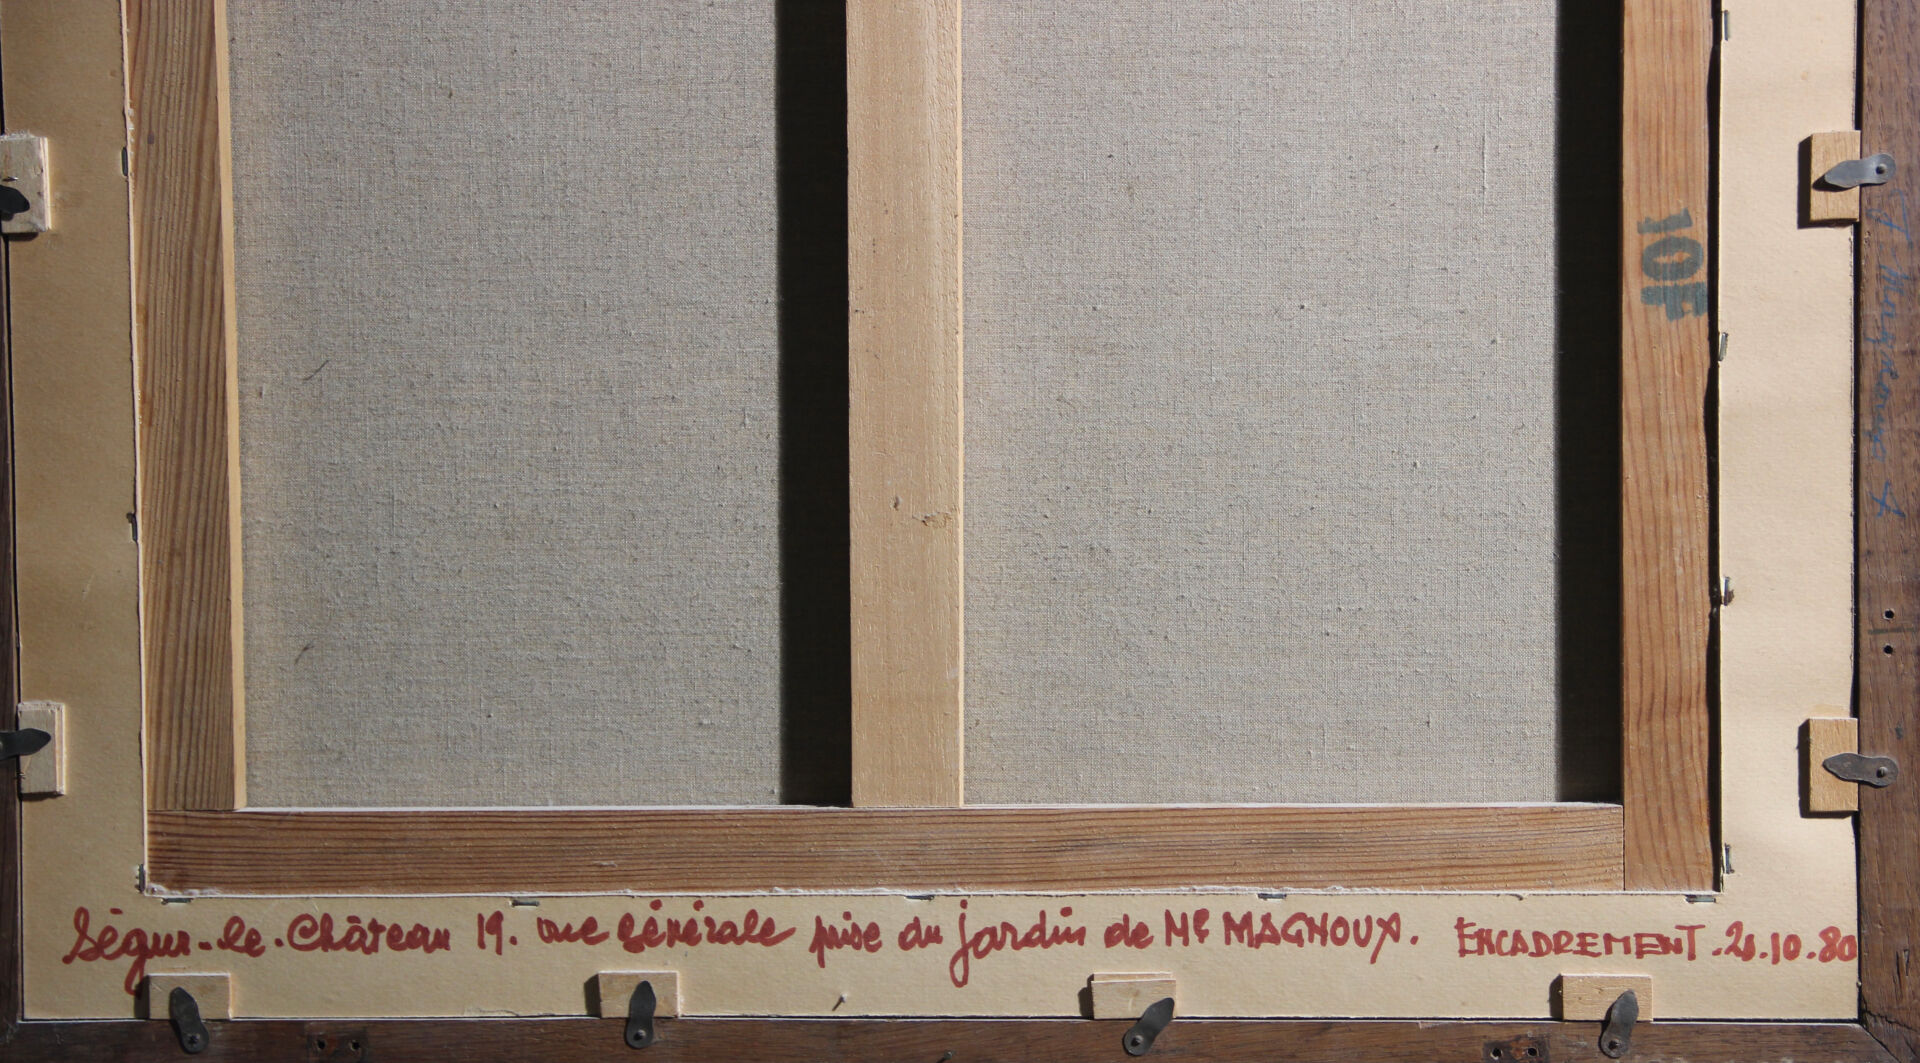 10F
Ségur-le-Château 19. vue générale prise du jardin de Me MAGNOUX. ENCADREMENT. 20.10.80